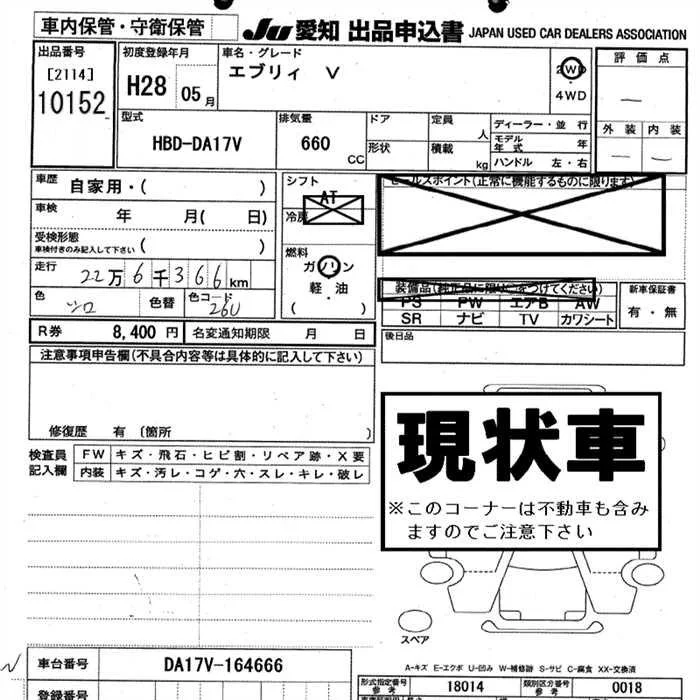 車内保管・守衛保管
JU 愛知 出品申込書 JAPAN USED CAR DEALERS ASSOCIATION
出品番号
[2114]
10152
初度登録年月
H28 05月
車名・グレード
エブリィ V
2WD
・
4WD
評価点
—
外装 内装
— —
型式
HBD-DA17V
排気量
660
CC
ドア
形状
定員
人
積載
kg
ディーラー・並行
モデル年式 年
ハンドル 左・右
車歴 自家用・( )
車検 年 月( 日)
受検形態
車検付きのみ記入して下さい ( )
走行 22万6千366km
色 シロ 色替 色コード 26U
シフト
AT
冷房
燃料
ガソリン
軽・油
( )
セールスポイント(正常に機能するものに限ります)
装備品(純正品に限り○をつけてください)
PS PW エアB AW
SR ナビ TV カワシート
新車保証書
有・無
後日品
R券 8,400円 名変通知期限 月 日
注意事項申告欄(不具合内容等は具体的に記入して下さい)
修復歴 有〔箇所 〕
検査員
記入欄
FW キズ・飛石・ヒビ割・リペア跡・X要
内装 キズ・汚レ・コゲ・穴・スレ・キレ・破レ
現状車
※このコーナーは不動車も含み
ますのでご注意下さい
スペア
A-キズ E-エクボ U-凹み W-補修跡 S-サビ C-腐食 XX-交換済
車台番号 DA17V-164666
登録番号
形式指定番号
参考
18014
類別区分番号
参考
0018